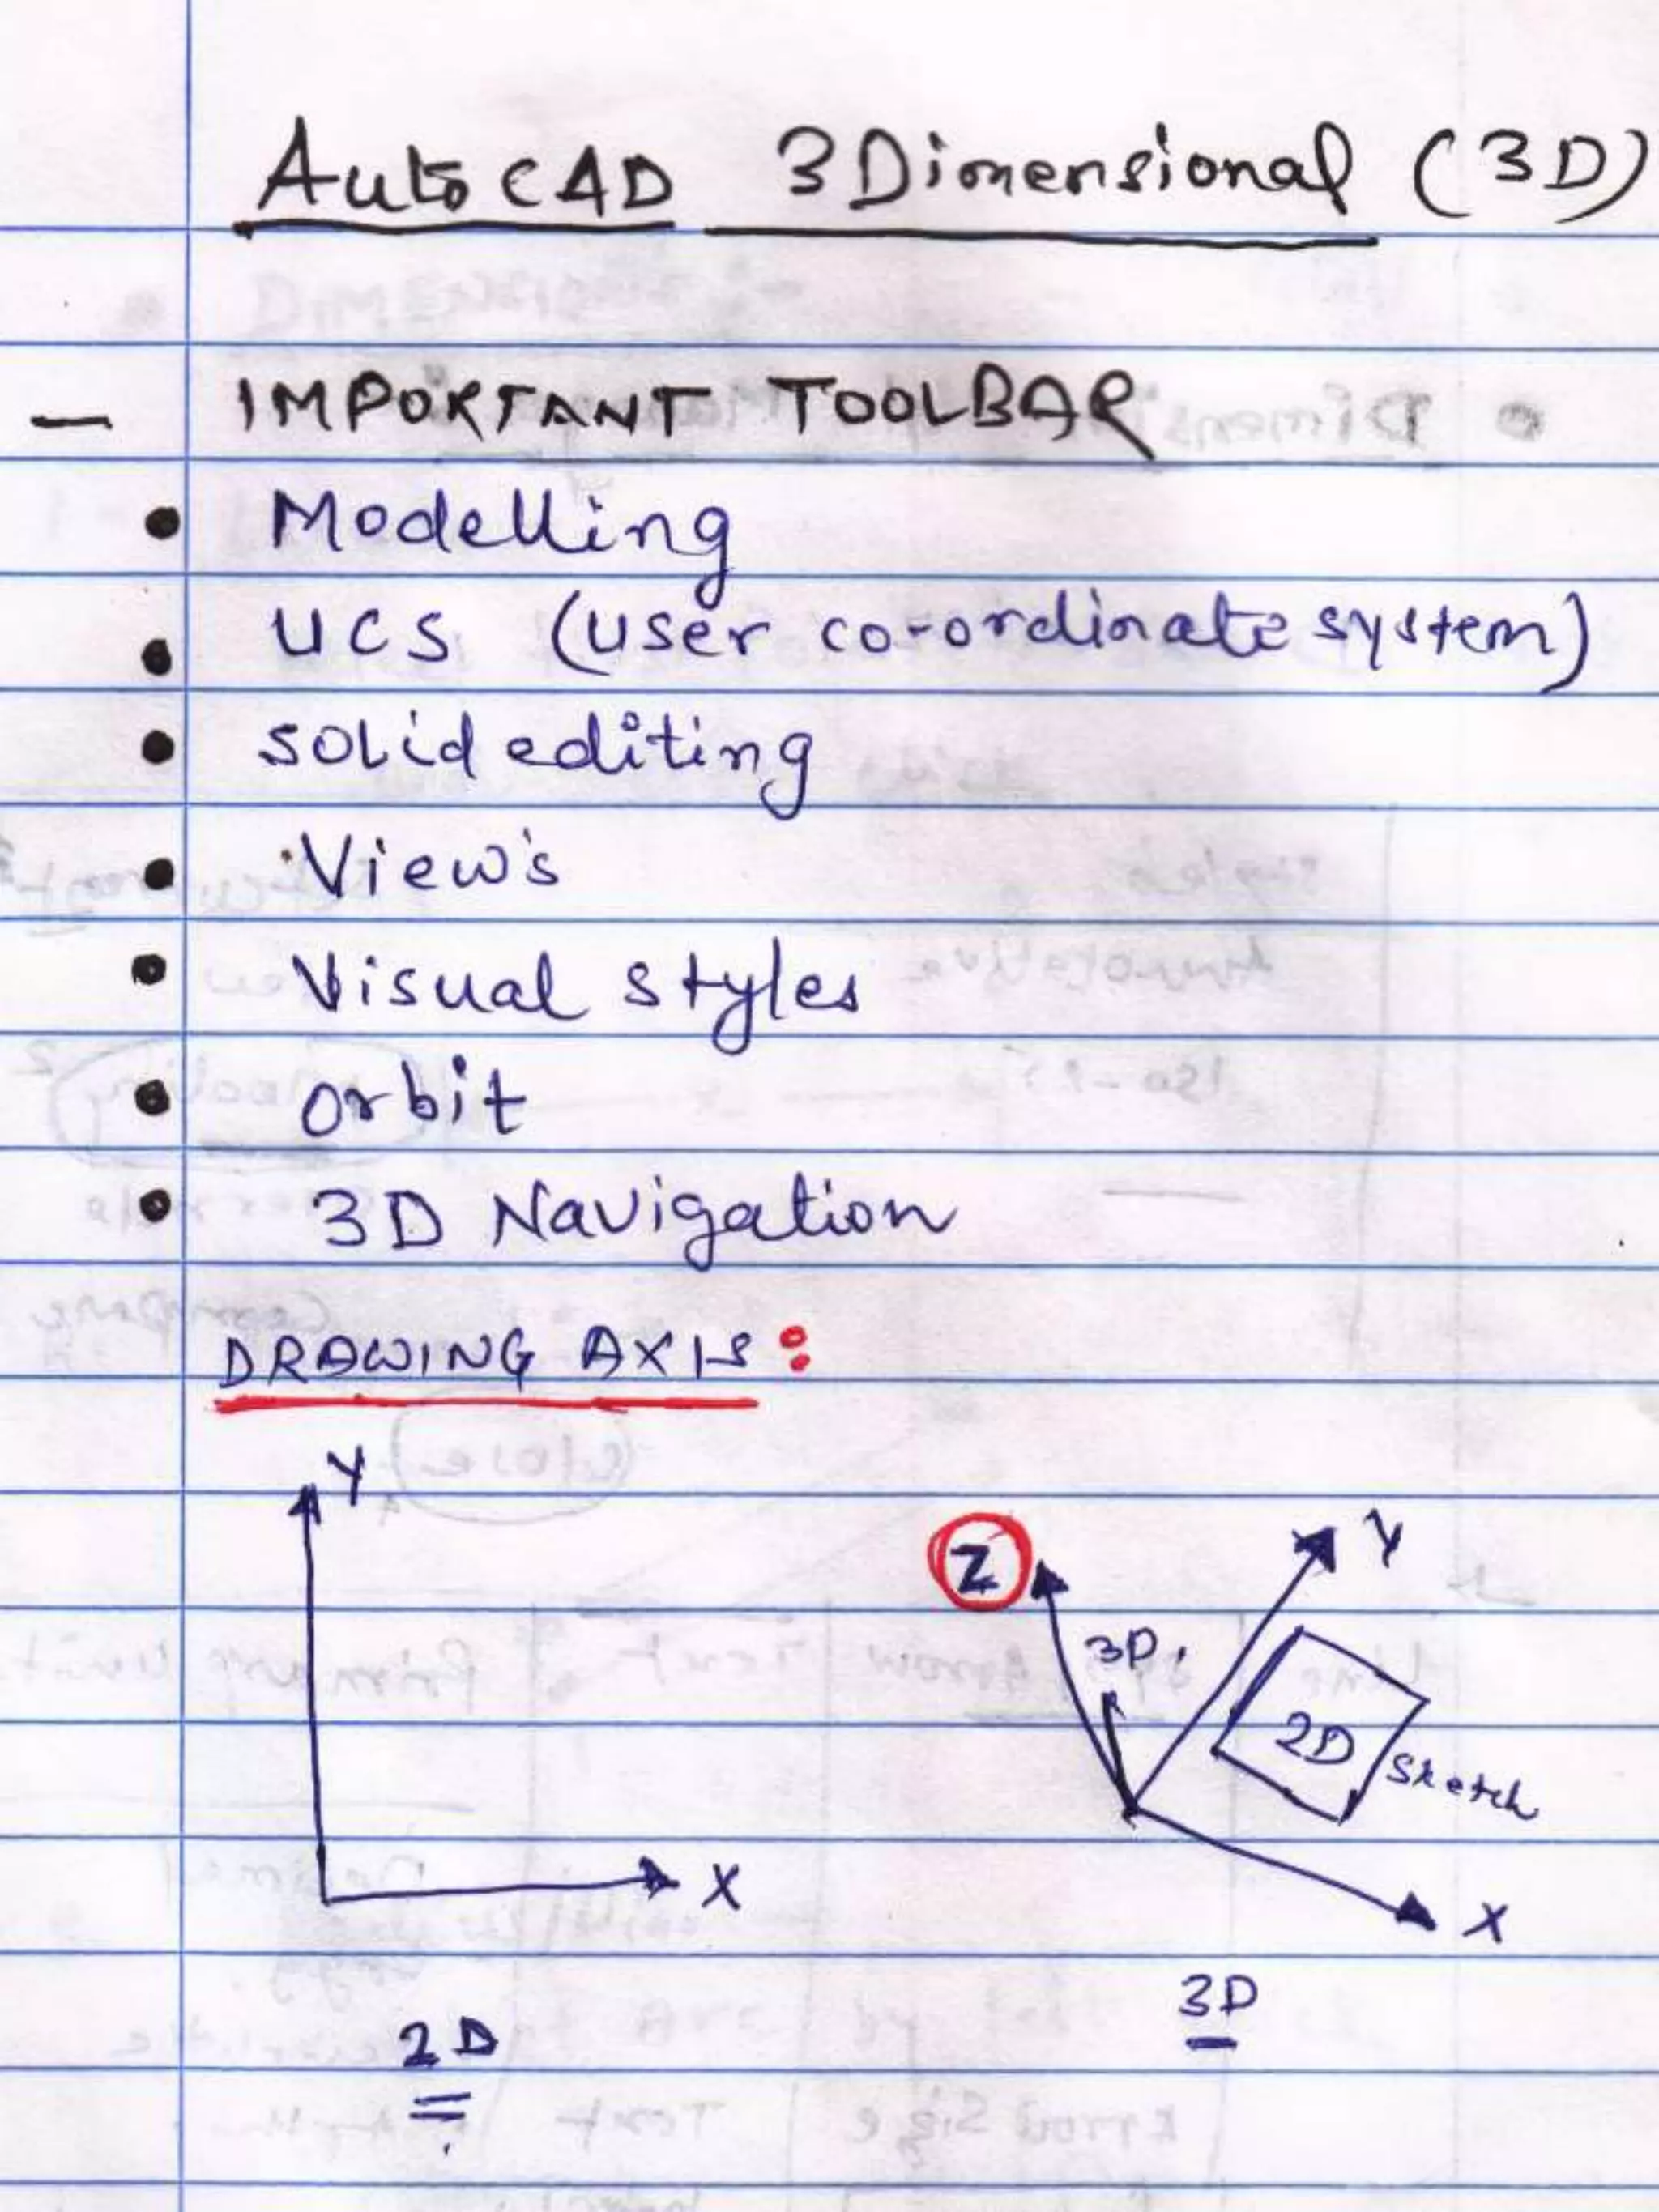 AutoCAD 3Dimensional (3D)
– IMPORTANT TOOLBAR
• Modelling
• UCS (user co-ordinate system)
• solid editing
• View's
• Visual styles
• orbit
• 3D Navigation
DRAWING AXIS:
Y
X
2D
Z
Y
3D
2D
Sketch
X
3D